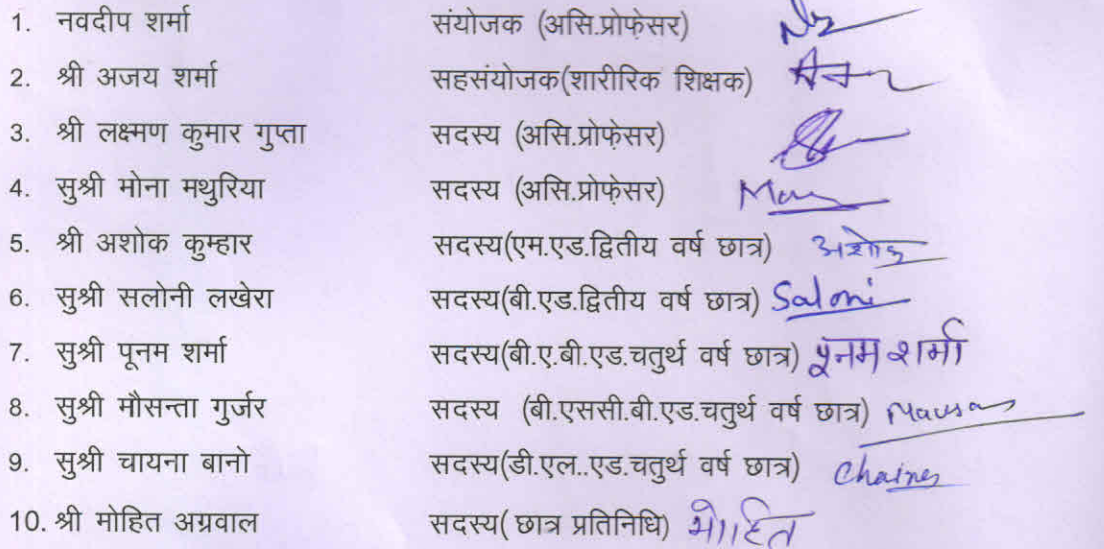 1. नवदीप शर्मा संयोजक (असि.प्रोफेसर)
2. श्री अजय शर्मा सहसंयोजक(शारीरिक शिक्षक)
3. श्री लक्ष्मण कुमार गुप्ता सदस्य (असि.प्रोफेसर)
4. सुश्री मोना मथुरिया सदस्य (असि.प्रोफेसर)
5. श्री अशोक कुम्हार सदस्य(एम.एड.द्वितीय वर्ष छात्र) अशोक
6. सुश्री सलोनी लखेरा सदस्य(बी.एड.द्वितीय वर्ष छात्र) Saloni
7. सुश्री पूनम शर्मा सदस्य(बी.ए.बी.एड.चतुर्थ वर्ष छात्र) पूनम शर्मा
8. सुश्री मौसन्ता गुर्जर सदस्य (बी.एससी.बी.एड.चतुर्थ वर्ष छात्र)
9. सुश्री चायना बानो सदस्य(डी.एल..एड.चतुर्थ वर्ष छात्र)
10. श्री मोहित अग्रवाल सदस्य( छात्र प्रतिनिधि) मोहित